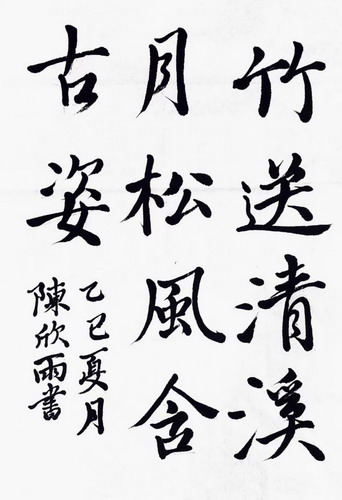 竹送清溪
月松風含
古姿
乙巳夏月
陳欣雨書